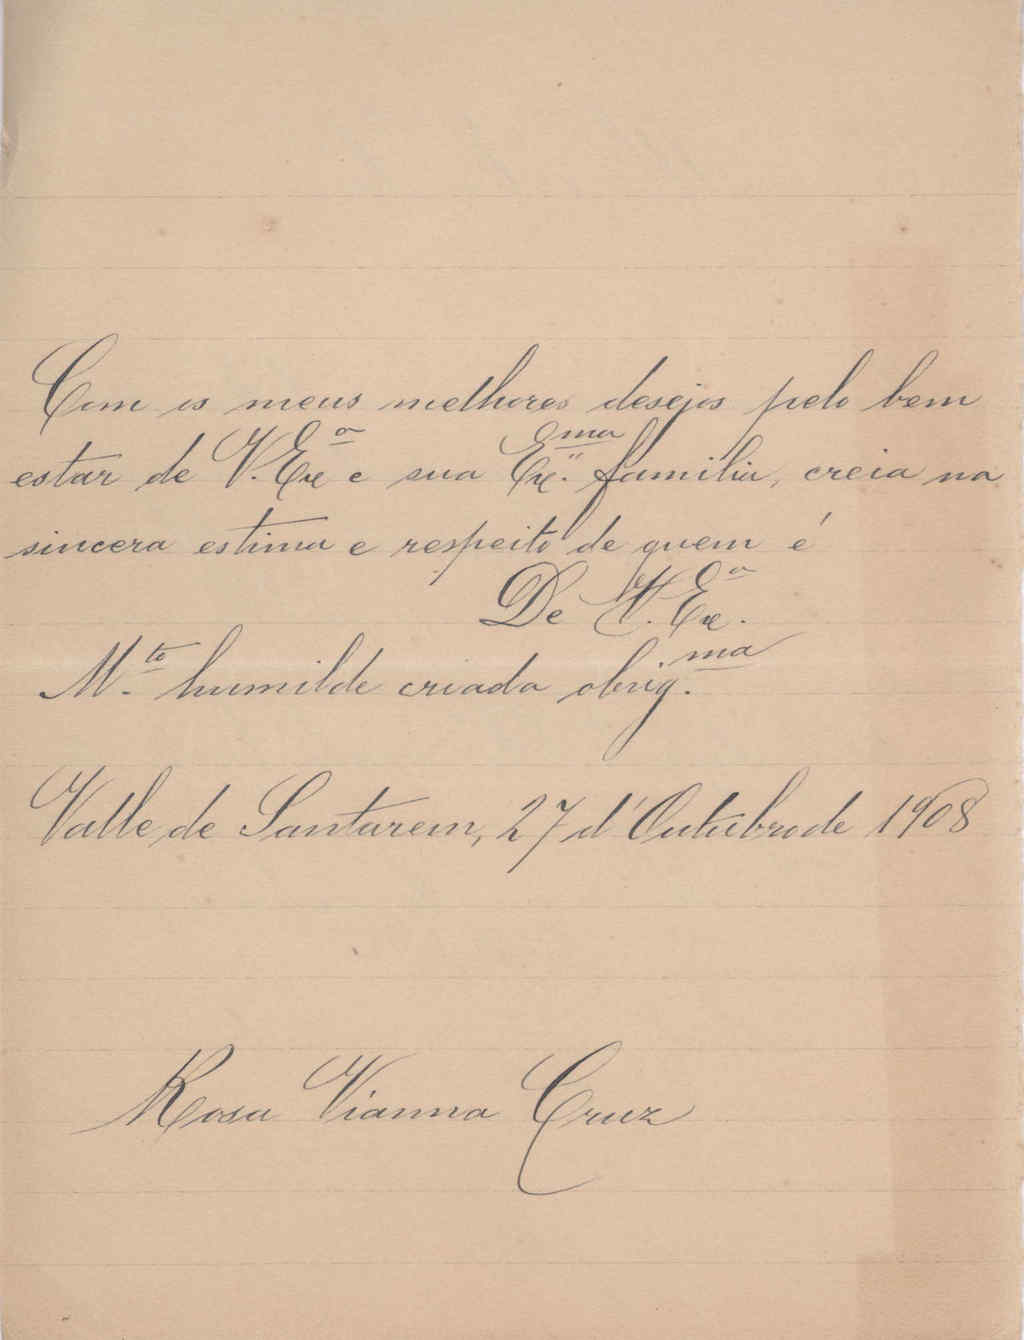 Com os meus melhores desejos pelo bem
estar de V. Exª e sua Ex.ma familia, creia na
sincera estima e respeito de quem é
De V. Exª.
M.to humilde criada obrig.ma
Valle de Santarem, 27 d'Outubro de 1908
Rosa Vianna Cruz